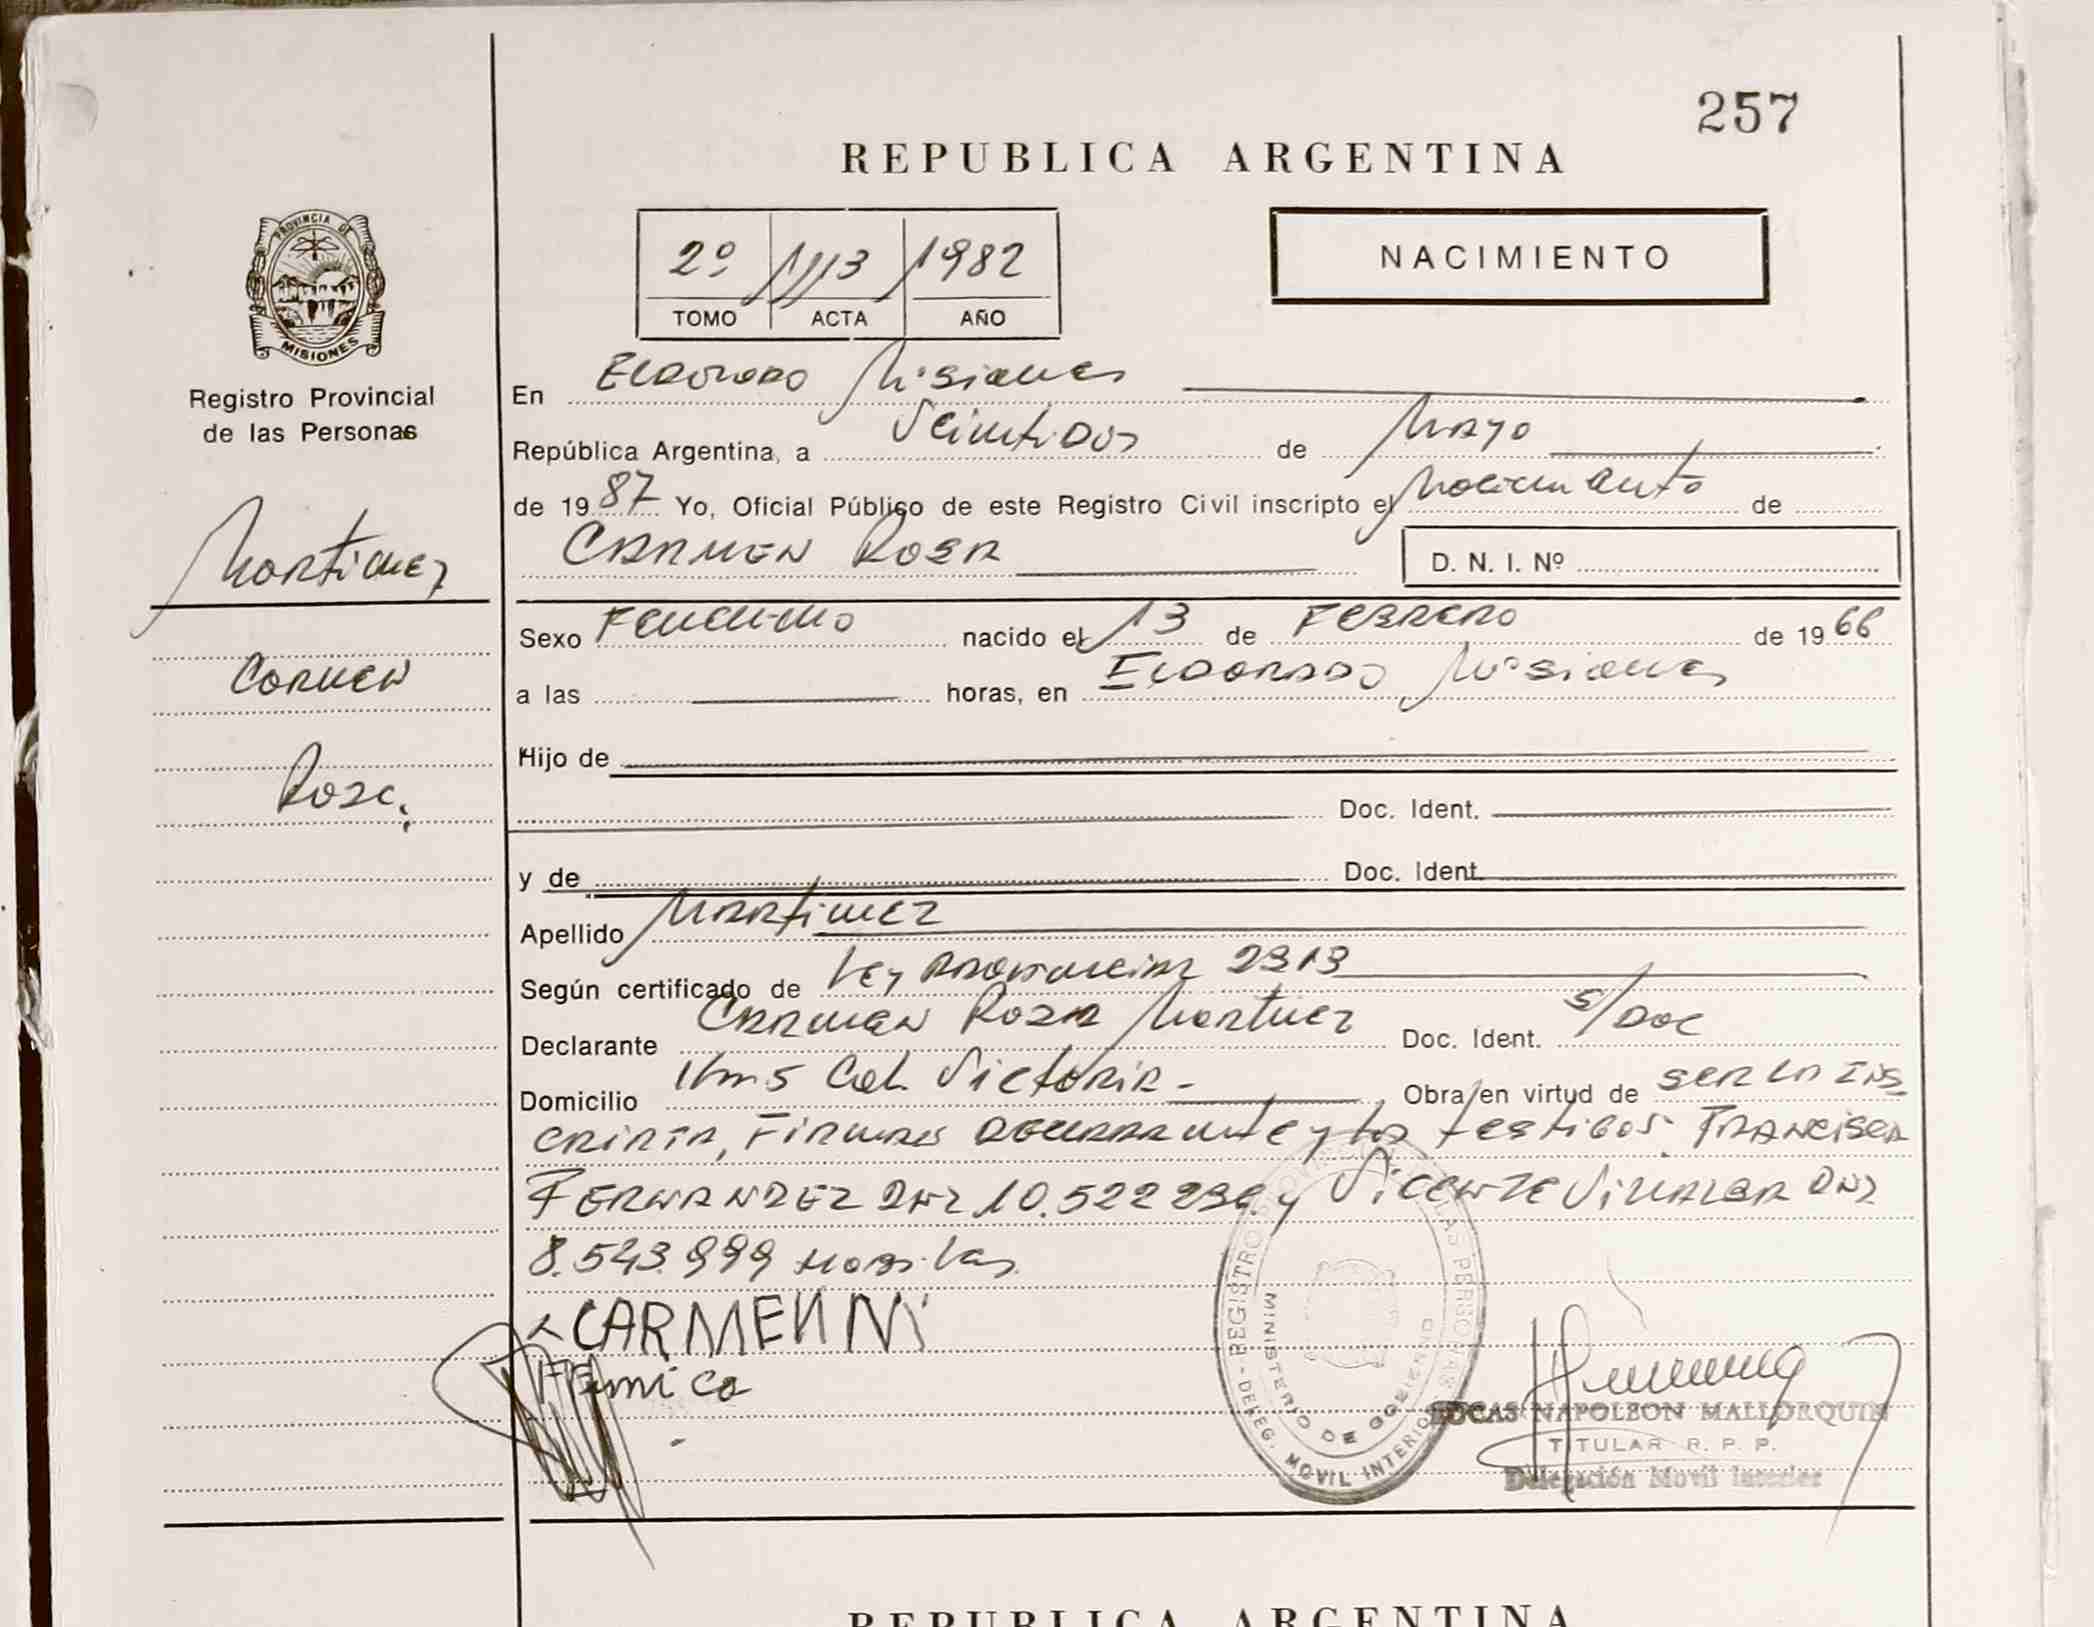 257
REPUBLICA ARGENTINA
PROVINCIA DE
MISIONES
Registro Provincial
de las Personas
Martinez
Carmen
Rosa.
2º 1113 1982
TOMO ACTA AÑO
NACIMIENTO
En Eldorado Misiones
República Argentina, a Veintidos de Mayo
de 1987 Yo, Oficial Público de este Registro Civil inscripto el Nacimiento de
CARMEN ROSA D. N. I. Nº
Sexo Femenino nacido el 13 de FEBRERO de 1966
a las horas, en ELDORADO Misiones
Hijo de
Doc. Ident.
y de Doc. Ident.
Apellido MARTINEZ
Según certificado de Ley Provincial 2313
Declarante CARMEN ROSA Martinez Doc. Ident. S/Doc
Domicilio Km5 Col. Victoria- Obra en virtud de ser la ins
cripta, Firman declarante y los testigos: FRANCISCA
FERNANDEZ DNI 10.522 y VICENTE DNI
8.543.999
CARMEN M
REGISTRO LAS PERSONAS
MINISTERIO DE GOBIERNO
DELEG. MOVIL INTERIOR
LUCAS NAPOLEON MALLORQUIN
TITULAR R. P. P.
Delegación Movil Interior
REPUBLICA ARGENTINA